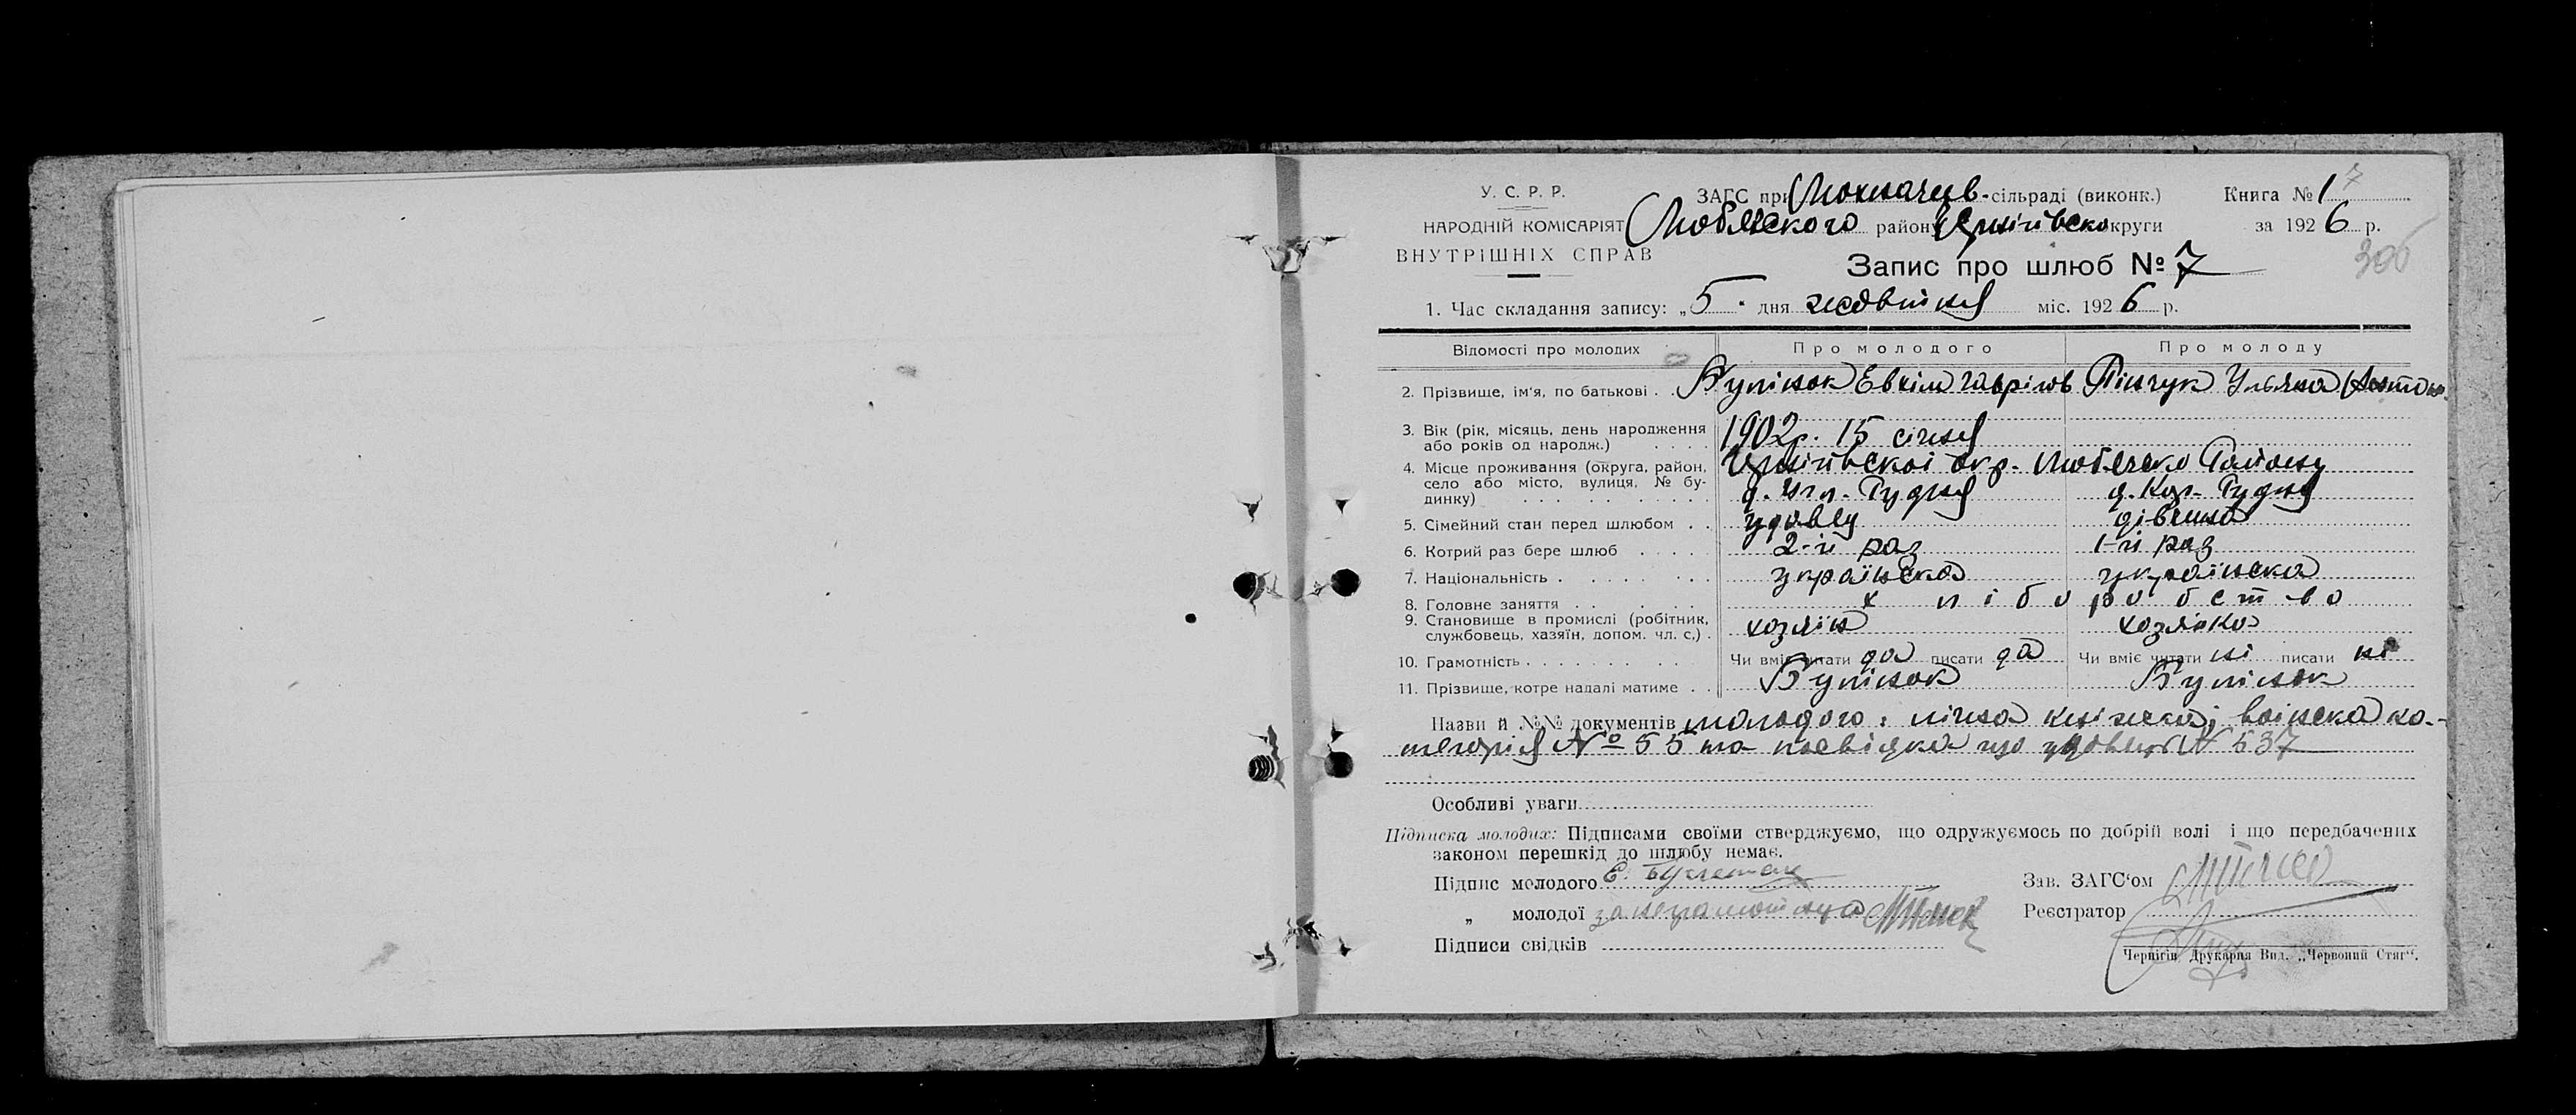 У. С. Р. Р.
НАРОДНІЙ КОМІСАРІЯТ
ВНУТРІШНІХ СПРАВ
ЗАГС при сільраді (виконк.)
Любецького району Чернігівсько округи
Книга № 1 7
за 1926 р.
306
Запис про шлюб № 7
1. Час складання запису: „5" дня жовтня міс. 1926 р.
Відомості про молодих Про молодого Про молоду
2. Прізвище, ім'я, по батькові . . Евхім Гаврілов Пінчук Ульяна
3. Вік (рік, місяць, день народження або років од народж.) . . . . 1902 р. 15 січня
4. Місце проживання (округа, район, село або місто, вулиця, № будинку) . . . . Чернігівскоі окр. Любецько Району
Рудня Рудня
5. Сімейний стан перед шлюбом . . удовец дівчина
6. Котрий раз бере шлюб . . . . 2-й раз 1-й раз
7. Національність . . . . . . . українська українська
8. Головне заняття . . . . . . хліборобство
9. Становище в промислі (робітник, службовець, хазяїн, допом. чл. с,) . хозяїн хозяйка
10. Грамотність . . . . . . . . . Чи вміє читати да писати да Чи вміє читати ні писати ні
11. Прізвище, котре надалі матиме . .
Назви й №№ документів молодого: лічна кніжечка; воінска ка-
тегорія № 55 та посвідка що удовець № 537
Особливі уваги
Підписка молодих: Підписами своїми стверджуємо, що одружуємось по добрій волі і що передбачених
законом перешкід до шлюбу немає.
Підпис молодого Е.
„ молодої за неграмотную
Підписи свідків
Зав. ЗАГС'ом
Реєстратор
Чернігів Друкарня Вид. „Червоний Стяг".